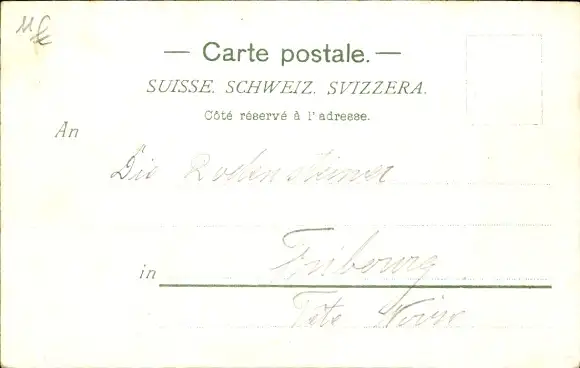 — Carte postale. —
SUISSE. SCHWEIZ. SVIZZERA.
Côté réservé à l'adresse.
An
Die Rodensteiner
in Fribourg
Tête Noire